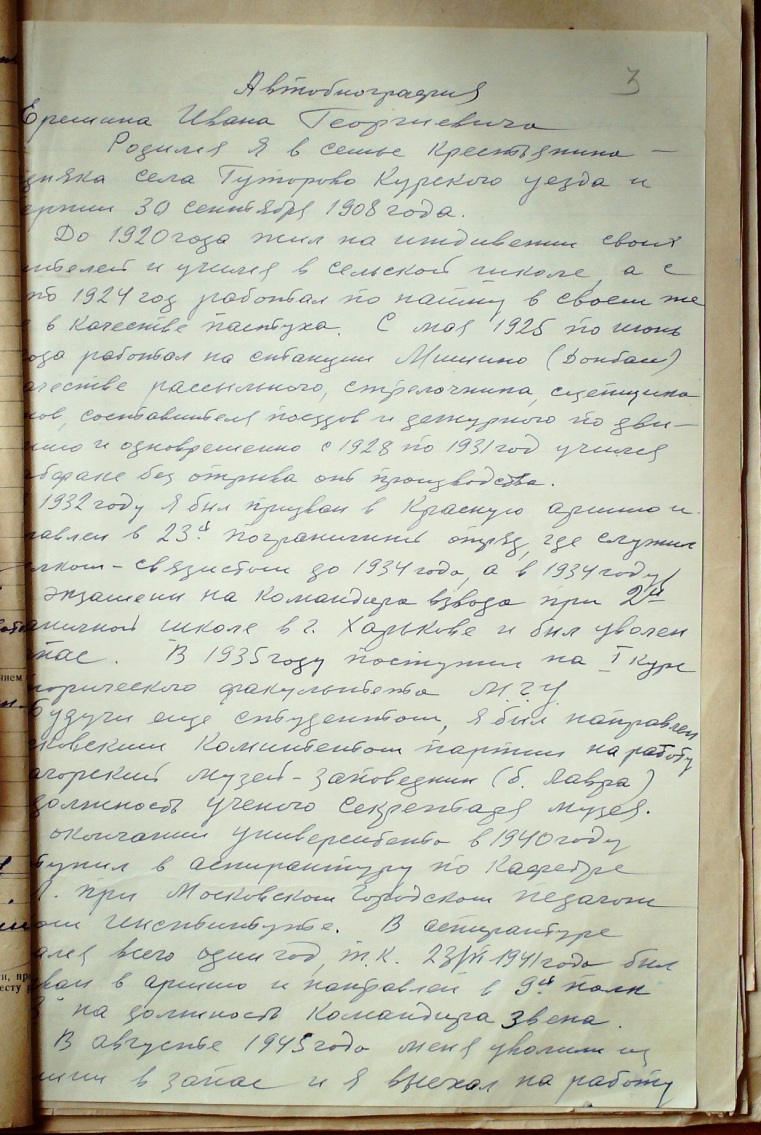 3
Автобиография
Еремина Ивана Георгиевича
Родился я в семье крестьянина –
дняка села Гуторово Курского уезда и
ернии 30 сентября 1908 года.
До 1920 года жил на иждивении своих
ителей и учился в сельской школе, а с
по 1924 год работал по найму в своем же
в качестве пастуха. С мая 1925 по июнь
ода работал на станции (Донбасс)
ачестве рассыльного, стрелочника, сцепщика
нов, составителя поездов и дежурного по дви–
нию и одновременно с 1928 по 1931 год учился
абфаке без отрыва от производства.
1932 году я был призван в Красную армию и
равлен в 23й пограничный отряд, где служил
елком-связистом до 1934 года, а в 1934 году
экзамени на командира взвода при 2й
аничной школе в г. Харькове и был уволен
пас. В 1935 году поступил на I курс
торического факультета МГУ
Будучи еще студентом, я был направлен
сковским комитетом партии на работу
агорский музей-заповедник (б. Лавра)
должность ученого секретаря музея.
окончании университета в 1940 году
тупил в аспирантуру по кафедре
Л. при Московском городском педагоги
ом институте. В аспирантуре
ался всего один год, т.к. 1941 года был
ван в армию и направлен в 9й полк
на должность командира звена.
В августе 1945 года меня уволили из
мии в запас и я выехал на работу